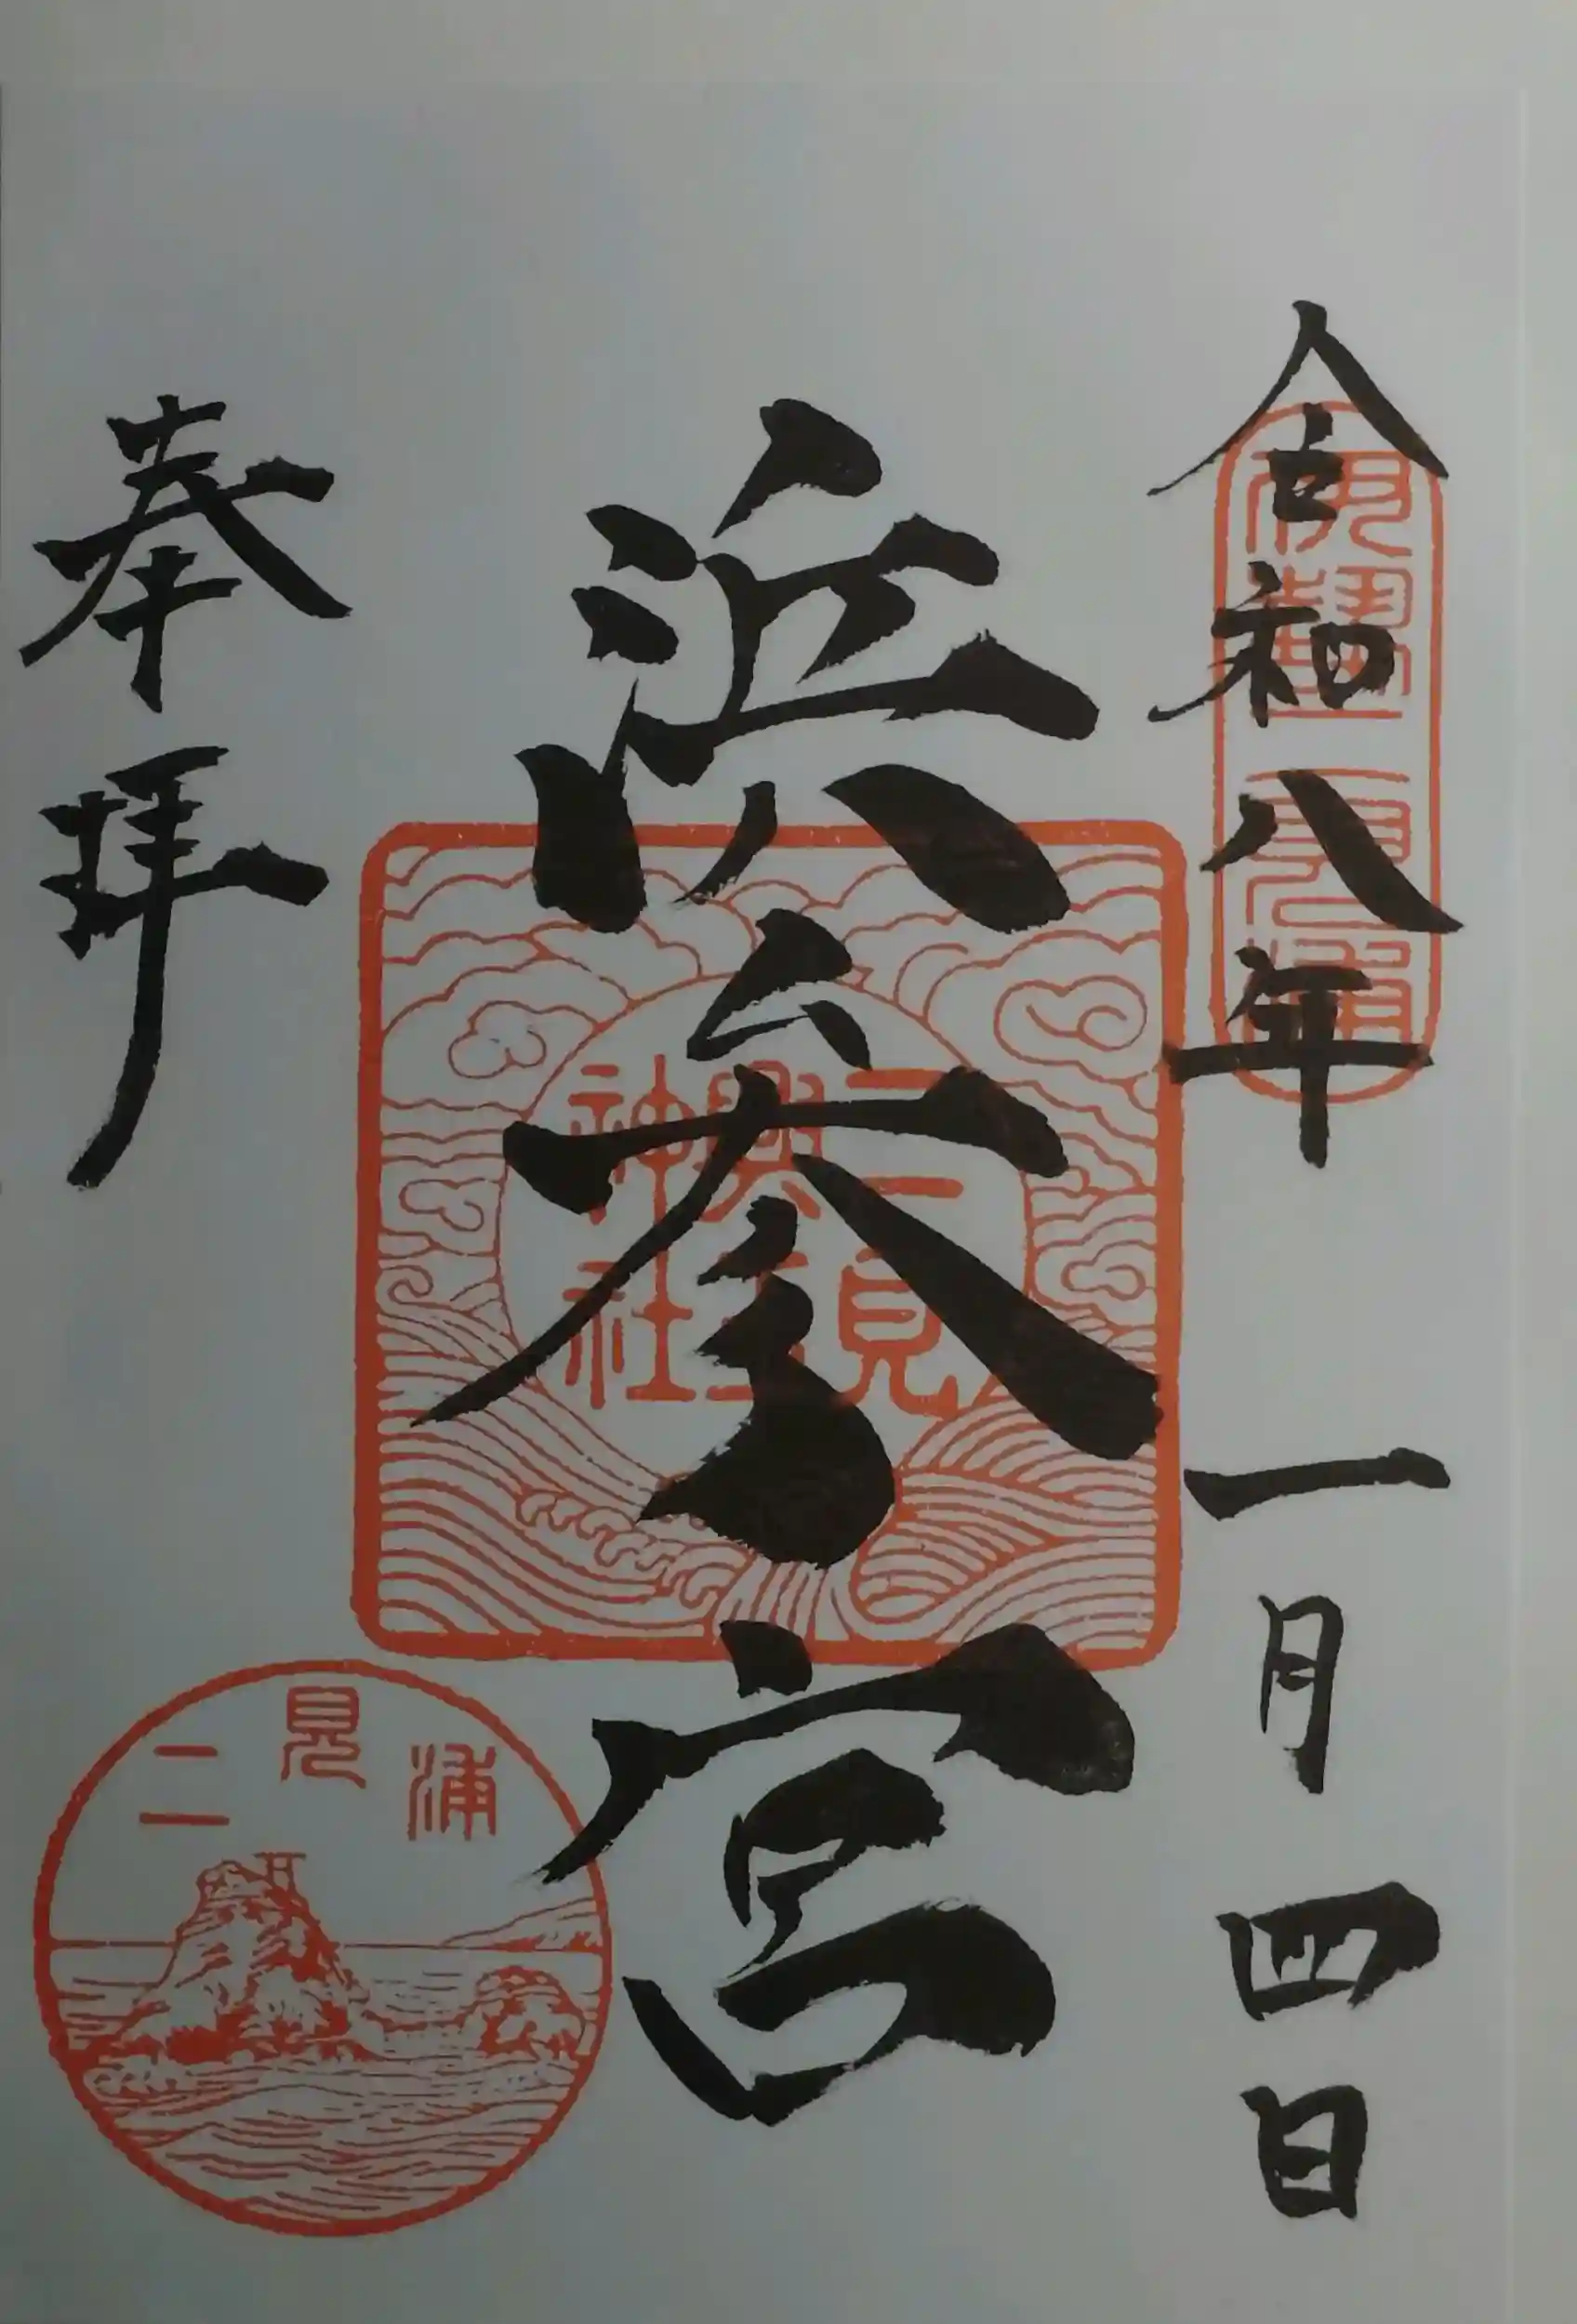 令和八年一月四日
伊勢二見浦
浜参宮
二見
興玉
神社
奉拝
二見浦